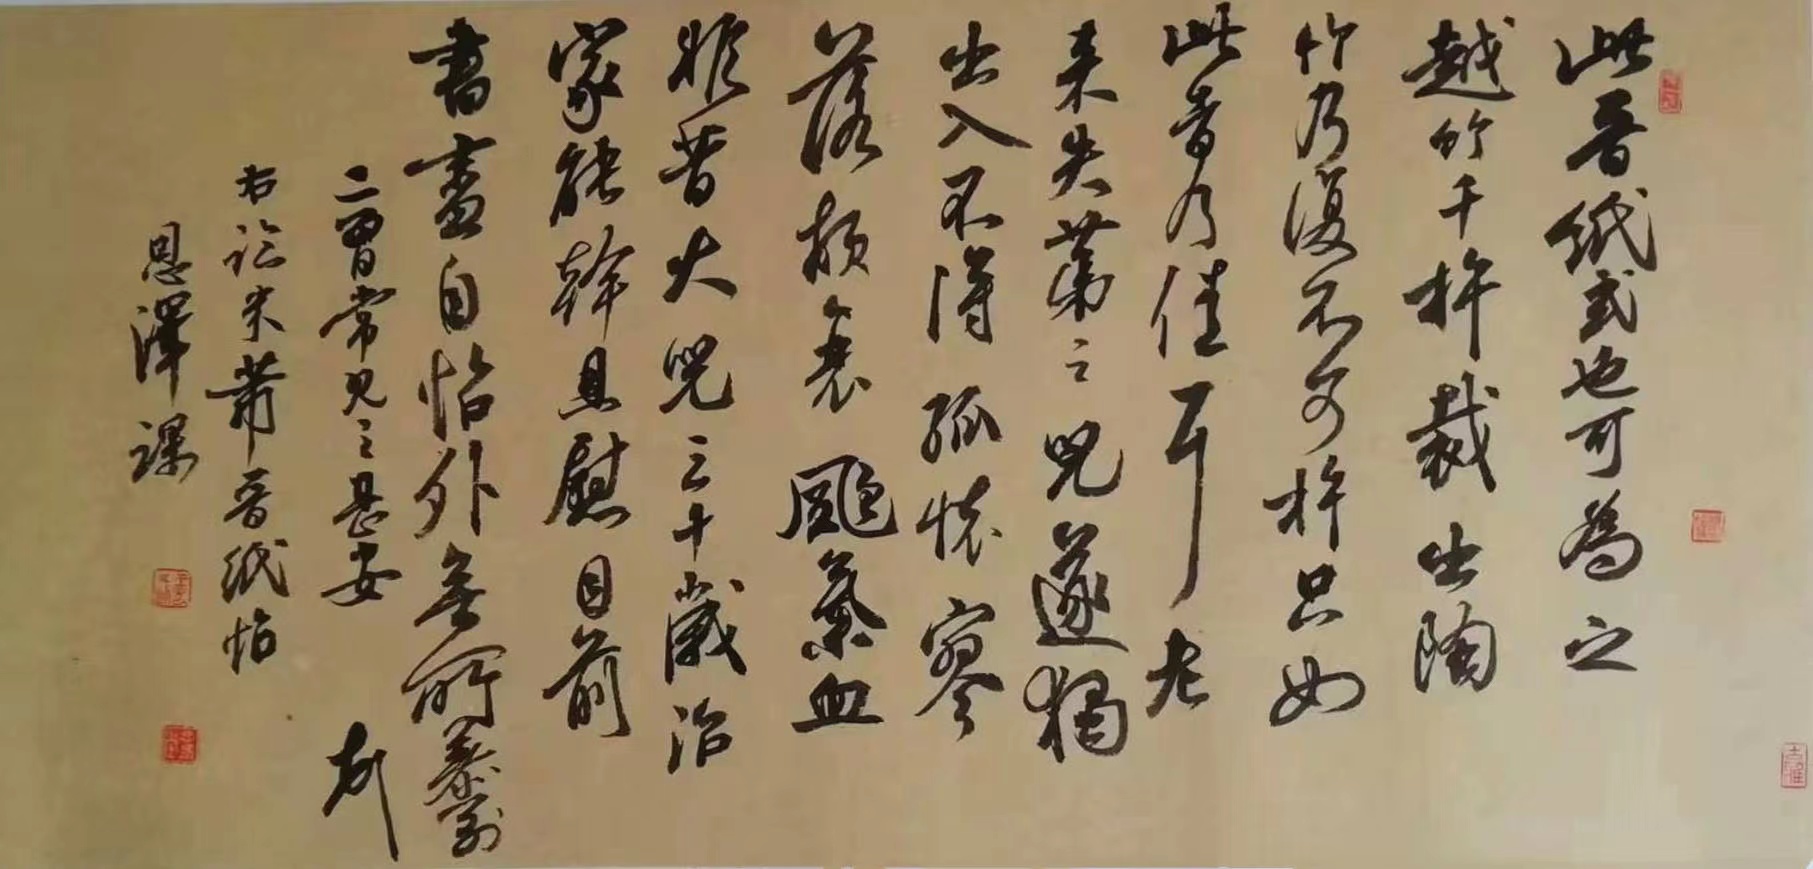 此晉紙式也可為之
越竹千杵裁出陶
竹乃復不可杵只如
此者乃佳耳老
来失苐二兒遂獨
出入不得孤懷寥
落頓衰颯氣血
非昔大兒三十歲治
家能幹且慰目前
書畫自怡外無所慕
二曾常見之甚安
右臨米芾晉紙帖
恩澤課